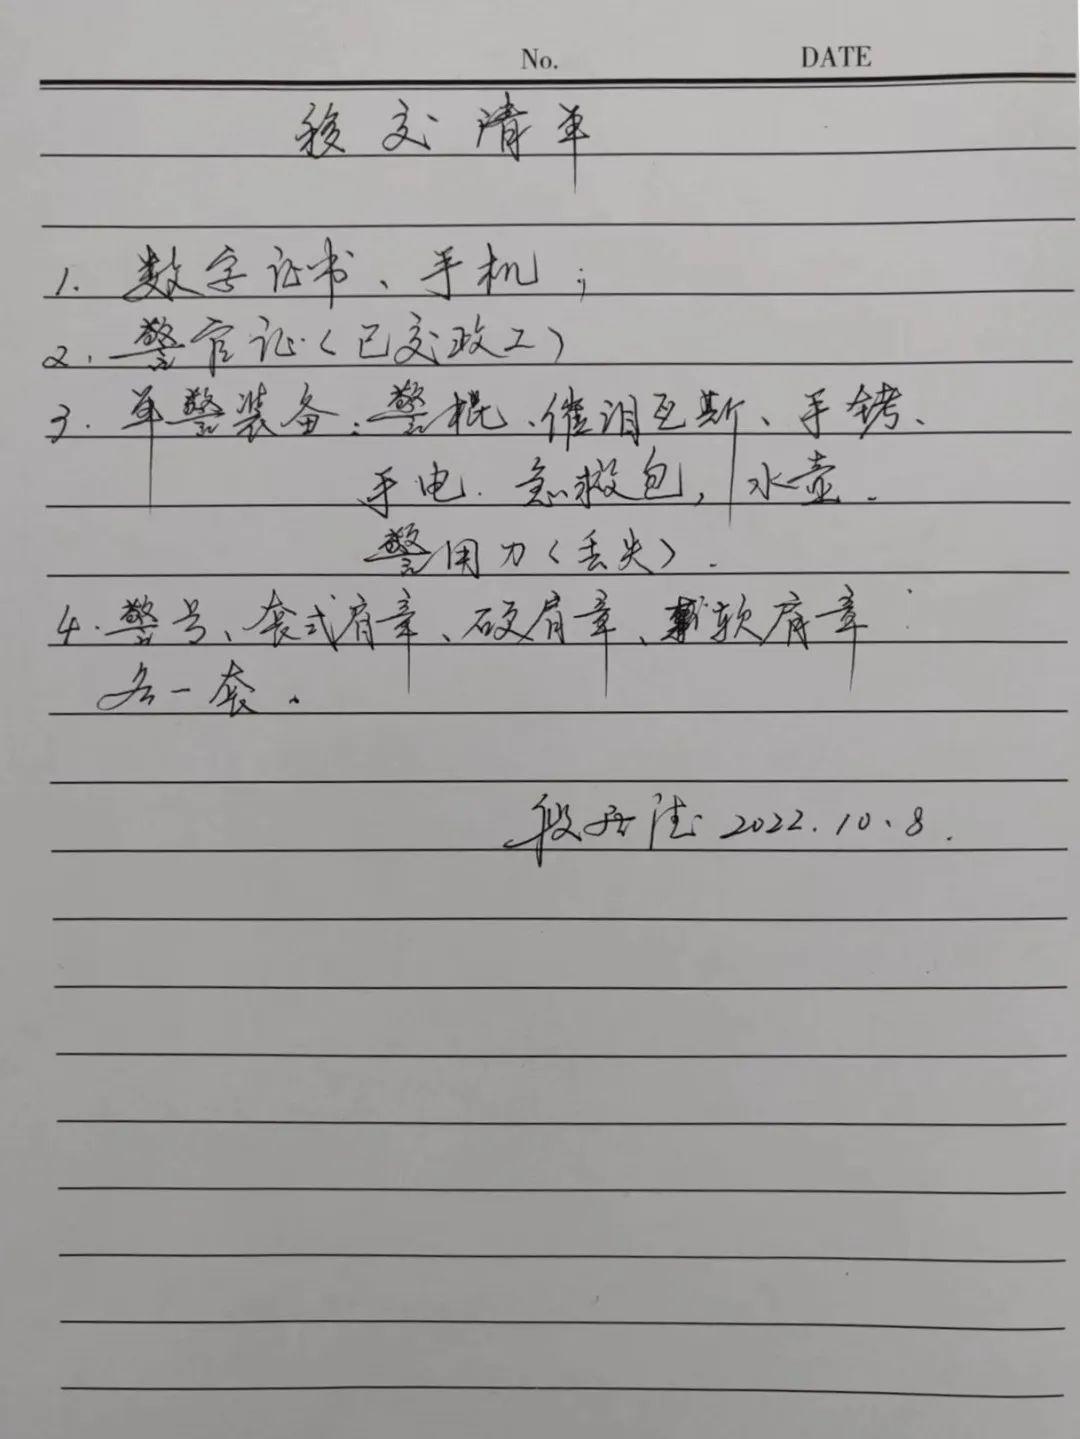 No. DATE
移交清单
1. 数字证书、手机；
2. 警官证（已交政工）
3. 单警装备：警棍、催泪瓦斯、手铐、
手电、急救包，水壶.
警用刀（丢失）.
4. 警号、套式肩章、硬肩章、软肩章
各一套.
段 2022.10.8.